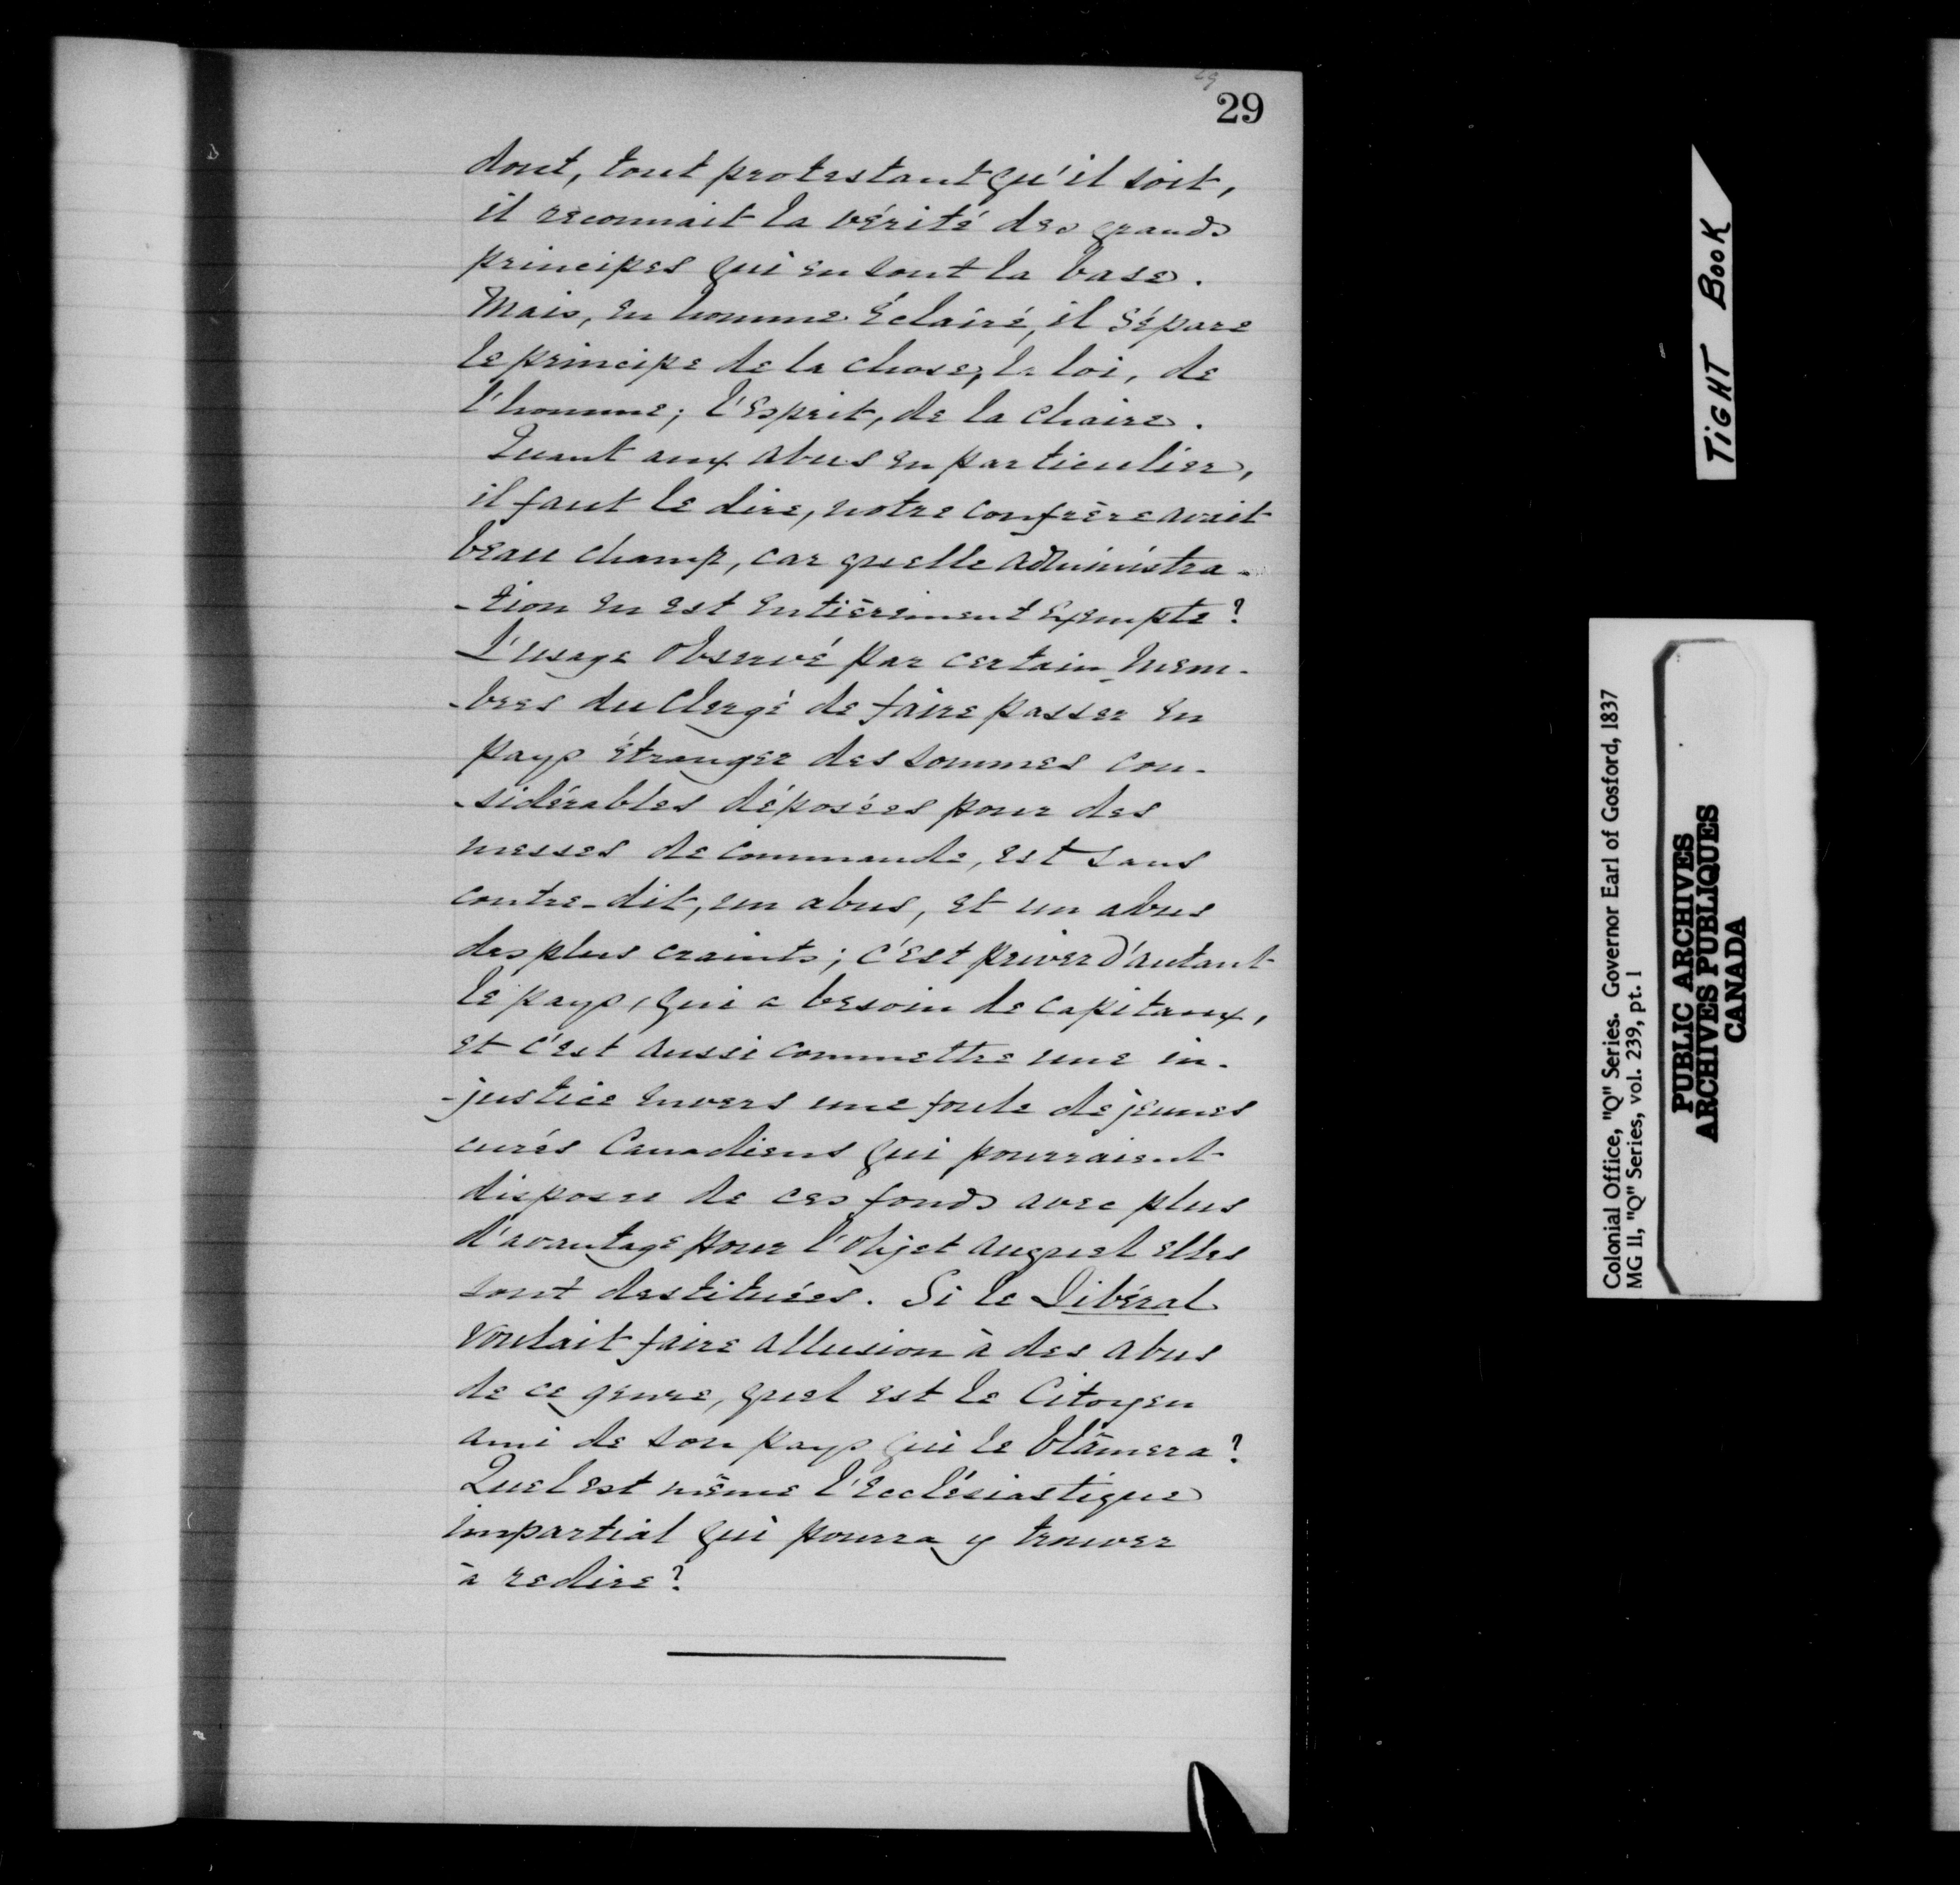 29
29
dont, tout protestant qu'il soit,
il reconnait la vérité des grands
principes qui en sont la base.
Mais, en homme éclairé, il sépare
le principe de la chose, la loi, de
l'homme; l'Esprit, de la chaire.
Quant aux abus en particulier,
il faut le dire, notre confrère avait
beau champ, car quelle administra-
-tion en est entièrement exempte?
L'usage observé par certain mem-
-bres du Clergé de faire passer en
pays étranger des sommes con-
-sidérables déposées pour des
messes de commande, est sans
contre-dit, un abus, et un abus
des plus craints; c'est priver d'autant
le pays, qui a besoin de capitaux,
et c'est aussi commettre une in-
-justice envers une foule de jeunes
curés Canadiens qui pourraient
disposer de ces fonds avec plus
d'avantage pour l'objet auquel elles
sont destituées. Si le Libéral
voulait faire allusion à des abus
de ce genre, quel est le Citoyen
ami de son pays qui le blâmera?
Quel est même l'Ecclésiastique
impartial qui pourra y trouver
à redire?
TIGHT BOOK
Colonial Office, "Q" Series. Governor Earl of Gosford, 1837
MG 11, "Q" Series, vol. 239, pt. 1
PUBLIC ARCHIVES
ARCHIVES PUBLIQUES
CANADA